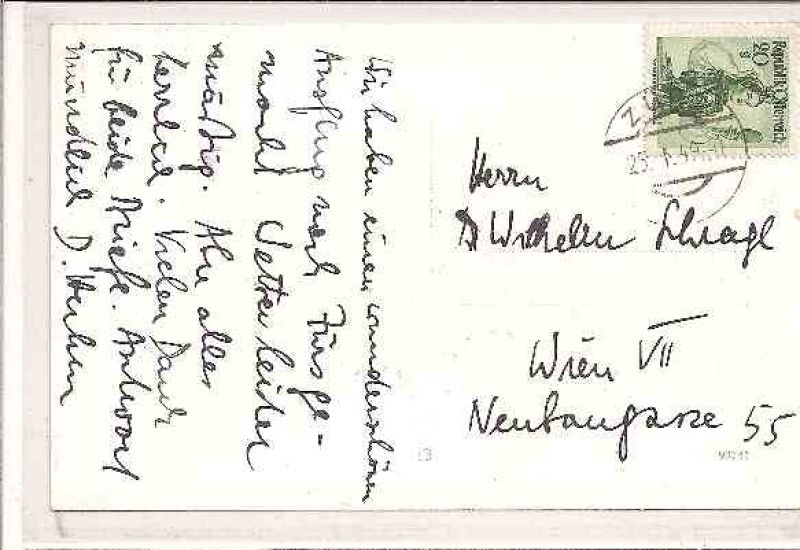 Wir haben einen wunderschönen
Ausflug nach Zürs ge-
macht. Wetter leider
mäßig. Aber alles
herrlich. Vielen Dank
für beide Briefe. Antwort
mündlich D.
Republik Österreich
20 g
Herrn
Dr Wilhelm Schragl
Wien VII
Neubaugasse 55